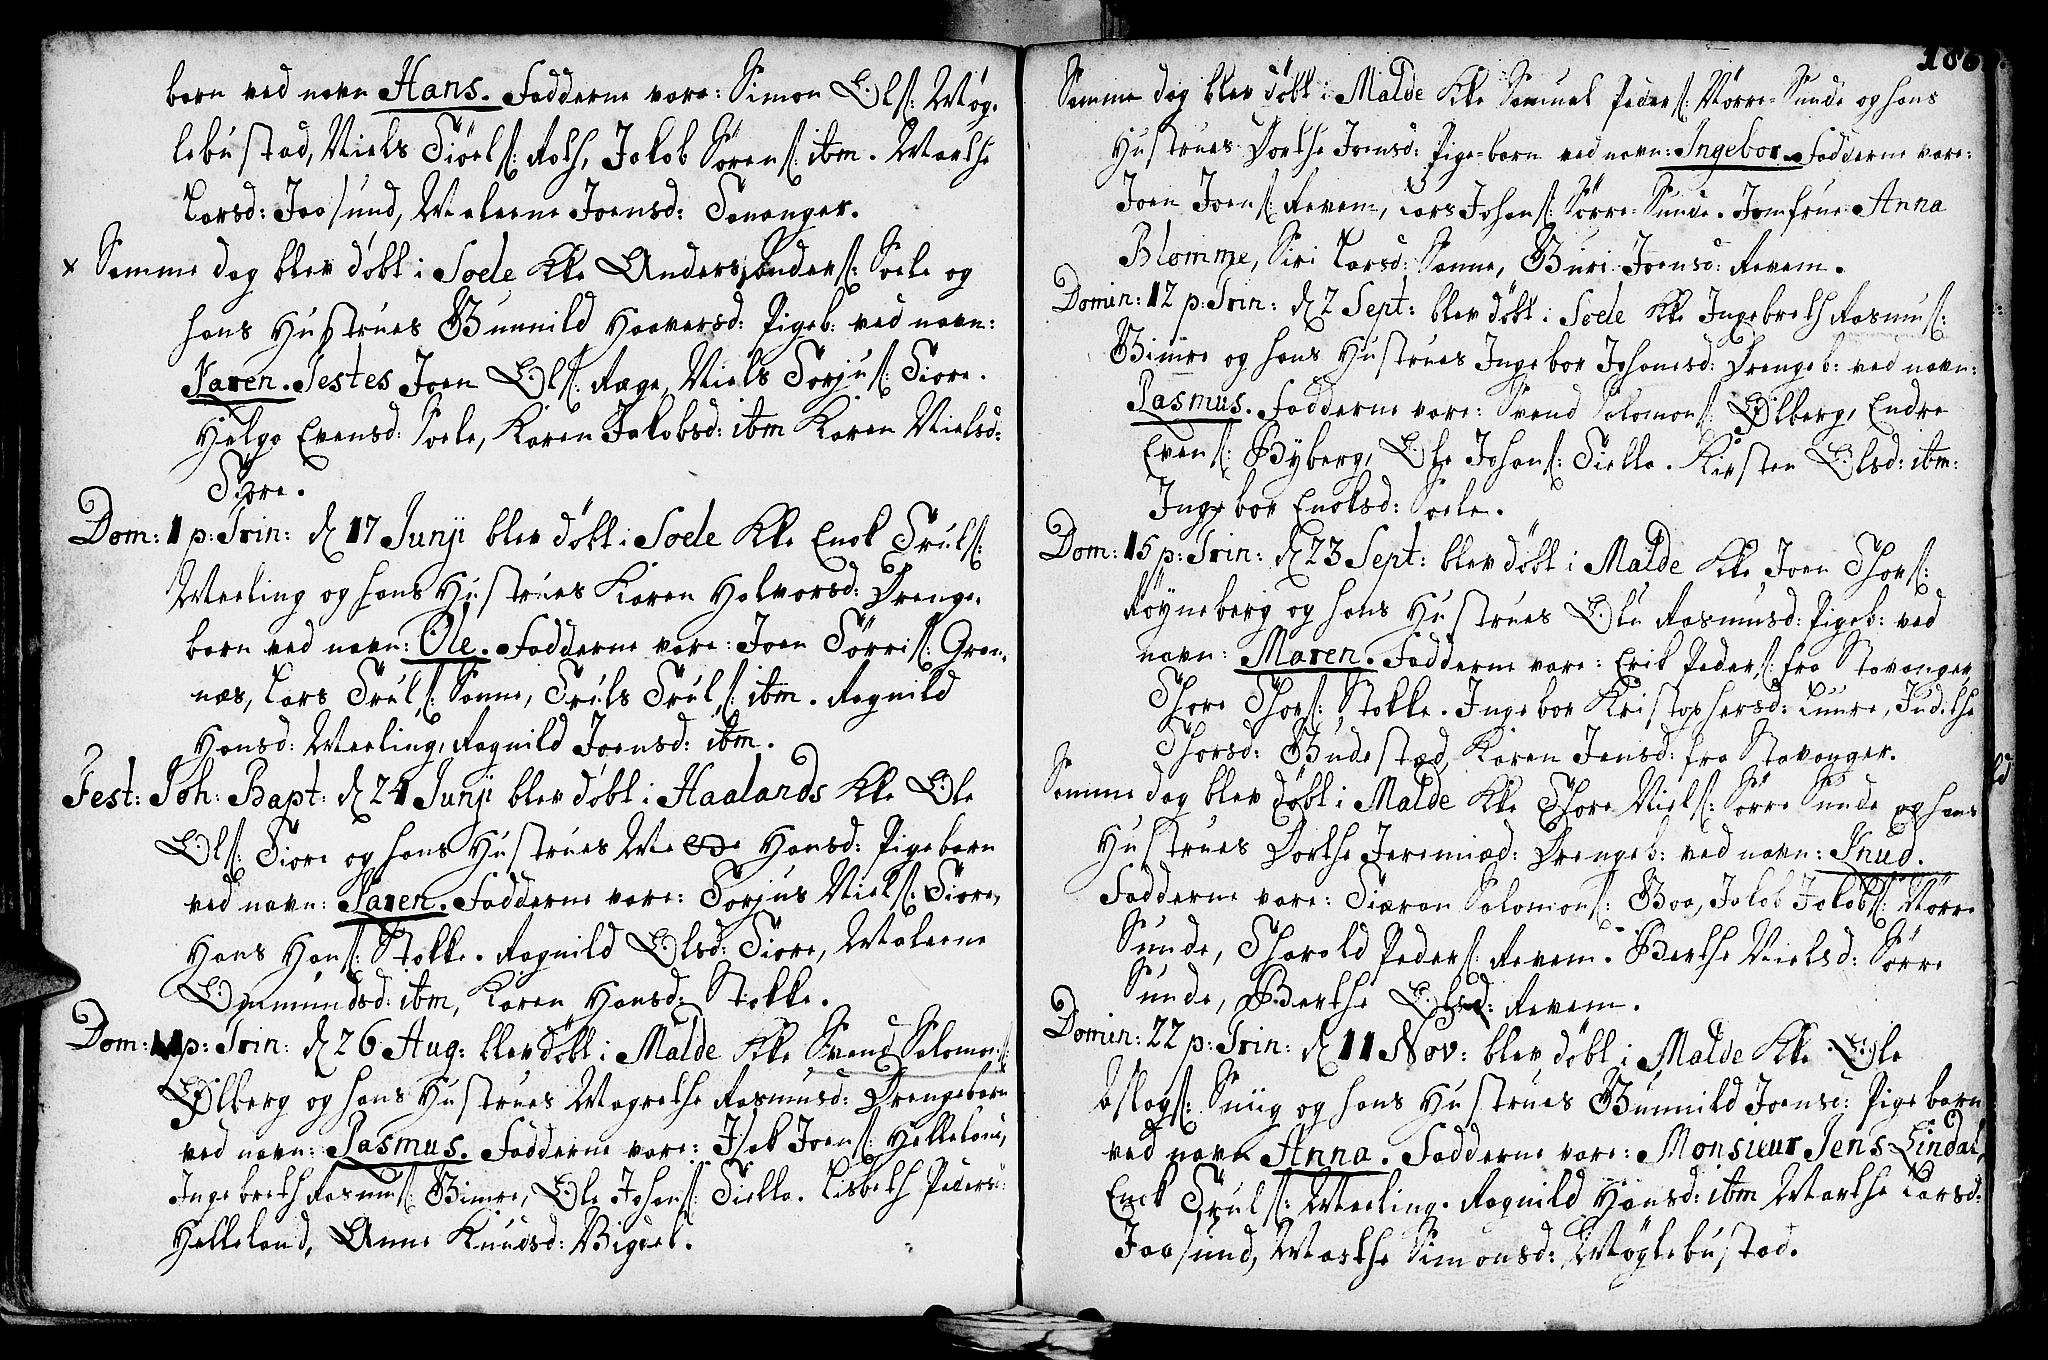 barn ved navn Hans. Fadderne vare: Simon Olſ: Møg-
lebustad, Niels Siøelſ: Roth, Jakob Sörenſ: ibm. Marthe
Larsd: Jaasund, Maleene Joensd: Tananger.
x Samme dag blev döbt i Soele Kke Anders Anderſ: Soele og
hans Hustrues Gunnild Haaversd: Pigeb: ved navn:
Karen. Testes Joen Olſ: Ræge, Niels Torjuſ: Tiore.
Helge Evensd: Soele, Karen Jakobsd: ibm Karen Nielsd:
Tiore.
Dom: 1 p: Trin: d 17 Junji blev döbt i Soele Kke Enok Trulſ:
Meeling og hans Hustrues Karen Halvorsd: Drenge-
barn ved navn: Ole. Fadderne vare: Joen Törriſ: Gran-
næs, Lars Trulſ: Sømme, Truls Trulſ: ibm. Ragnild
Hansd: Meeling, Ragnild Joensd: ibm.
Fest: Joh: Bapt: d 24 Junji blev döbt i Haalands Kke Ole
Olſ: Tiore og hans Hustrues Hansd: Pigebarn
ved navn: Karen. Fadderne vare: Torjus Nielſ: Tiore,
Hans Hanſ: Stokke. Ragnild Olsd: Tiore, Maleene
Omundsd: ibm, Karen Hansd: Stokke.
Dom: 11 p: Trin: d 26 Aug: blev döbt i Malde Kke Svend Salomonſ:
Ølberg og hans Hustrues Magrethe Rasmusd: Drengebarn
ved navn: Rasmus. Fadderne vare: Isak Joenſ: Helleland,
Ingebreth Rasmuſ: Gimre, Ole Johanſ: Tiella. Lisbeth Pedersd:
Helleland, Anne Knudsd: Bigdel.
186
Samme dag blev döbt i Malde Kke Samuel Pederſ: Nörre-Sunde og hans
Hustrues Dorthe Joensd: Pige-barn ved navn: Ingebor. Fadderne vare:
Joen Joenſ: Revem, Lars Johanſ: Sörre-Sunde. Jomfrue Anna
Blomme, Siri Larsd: Sømme, Guri Joensd: Revem.
Domin: 12 p: Trin: d 2 Sept: blev döbt i Soele Kke Ingebreth Rasmuſ:
Gimre og hans Hustrues Ingebor Johansd: Drengeb: ved navn:
Rasmus. Fadderne vare: Svend Salomonſ: Ølberg, Endre
Evenſ: Byberg, Ole Johanſ: Tiella. Kirsten Olsd: ibm:
Ingebor Enoksd: Soele.
Dom: 15 p: Trin: d 23 Sept: blev döbt i Malde Kke Joen Thorſ:
Röyneberg og hans Hustrues Olu Rasmusd: Pigeb: ved
navn: Maren. Fadderne vare: Erik Pederſ: fra Stavanger,
Thore Thorſ: Stokke. Ingebor Kristophersd: Luure, Judithe
Thorsd: Gudestad, Karen Jensd: fra Stavanger.
Samme dag blev döbt i Malde Kke Thore Nielſ: Sörre Sunde og hans
Hustrues Dorthe Jeremiæd: Drengeb: ved navn: Knud.
Fadderne vare: Tiæran Salomonſ: Goa, Jakob Jakobſ: Nörre
Sunde, Tharald Pederſ: Revem. Berthe Nielsd: Sörre
Sunde, Berthe Olsd: Revem.
Domin: 22 p: Trin: d 11 Nov: blev döbt i Malde Kke Ole
Aslagſ: Sniig og hans Hustrues Gunnild Joensd: Pigebarn
ved navn Anna. Fadderne vare: Monsieur Jens Lindal,
Enok Trulſ: Meeling. Ragnild Hansd: ibm Marthe Larsd:
Jaasund, Marthe Simonsd: Møglebustad.